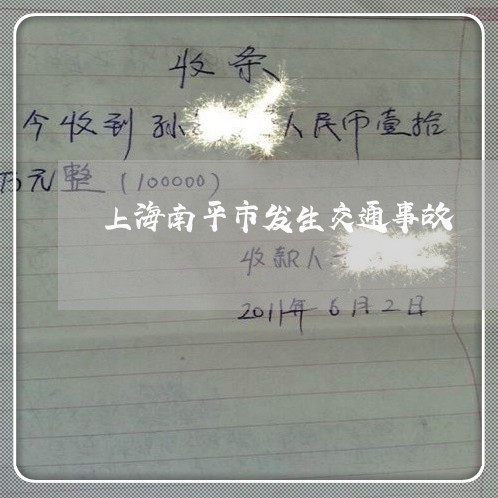 收条
今收到孙 人民币壹拾
万元整（100000）
上海南平市发生交通事故
收款人
2011年6月2日